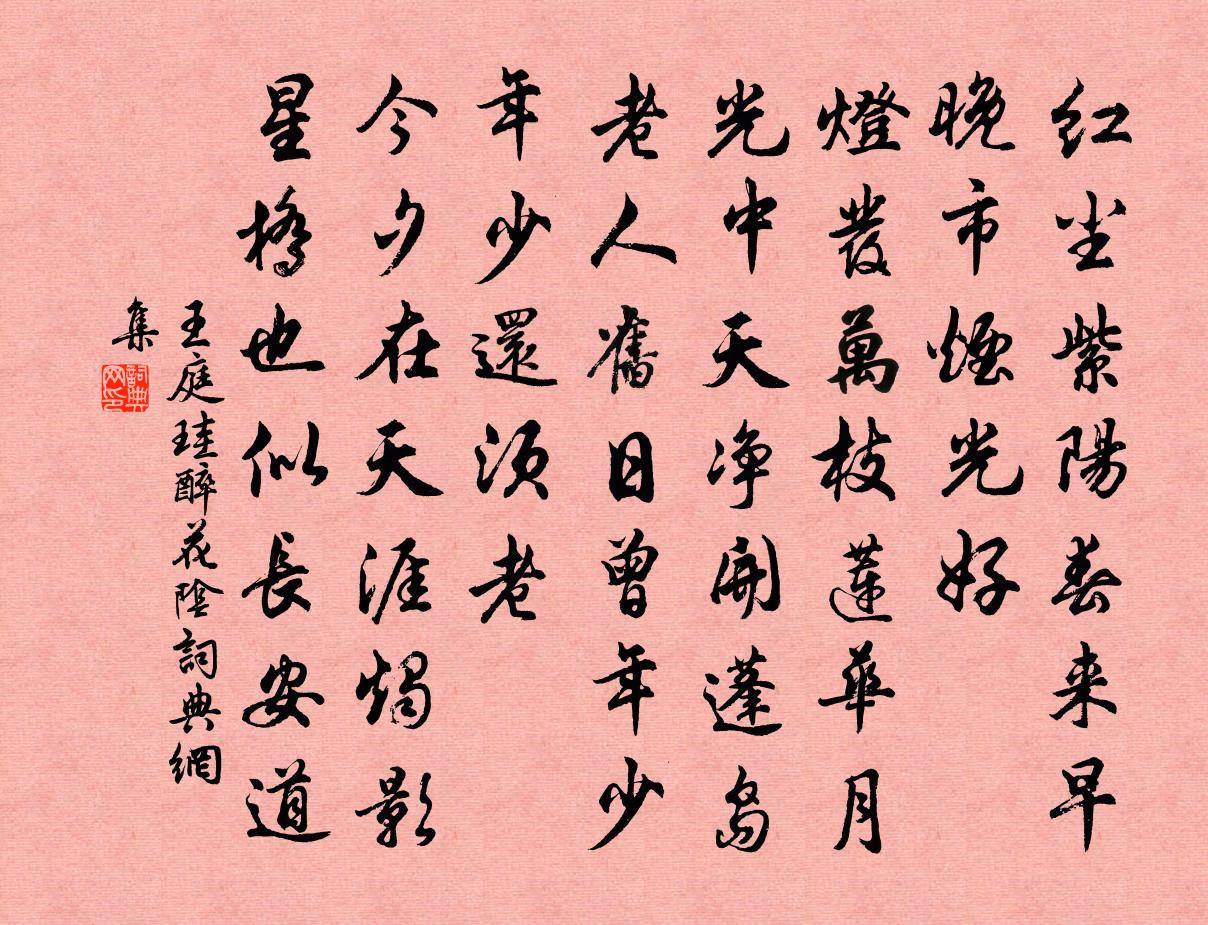 红尘紫陽春来早
晚市煙光好
燈發萬枝蓮華月
光中天净開蓬島
老人舊日曾年少
年少還須老
今夕在天涯燭影
星橋也似長安道
王庭珪醉花陰詞典網
集
詞典網印